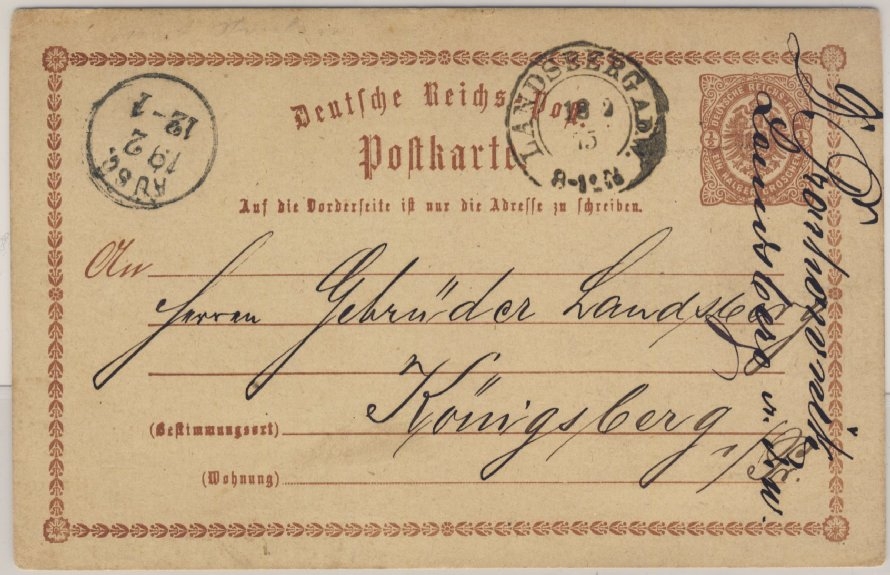 Deutsche Reichs-Post
Postkarte
Auf die Vorderseite ist nur die Adresse zu schreiben.
AUSG.
19 2
12-1
LANDSBERG A.D.W.
18 2
75
8-12 N
DEUTSCHE REICHS-POST
EIN HALBER GROSCHEN
An
Herren Gebrüder Landsberg
Königsberg
i/Pr.
(Bestimmungsort)
(Wohnung)
Landsberg a. d. W.